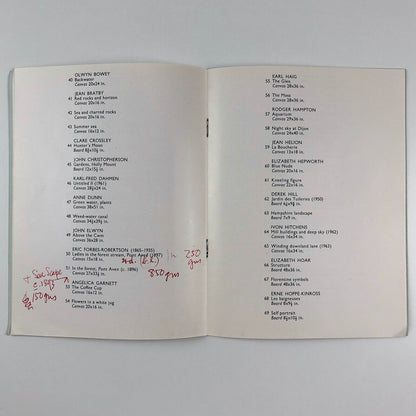 OLWYN BOWEY
40 Backwater
Canvas 20x24 in.
JEAN BRATBY
41 Red rocks and horizon
Canvas 20x16 in.
42 Sea and charred rocks
Canvas 20x16 in.
43 Summer sea
Canvas 16x12 in.
CLARE CROSSLEY
44 Hunter's Moon
Board 8½x10½ in.
JOHN CHRISTOPHERSON
45 Gardens, Holly Mount
Board 12x15½ in.
KARL-FRED DAHMEN
46 Untitled II (1961)
Canvas 39x29½ in.
ANNE DUNN
47 Green water, plants
Canvas 38x51 in.
48 Weed-water canal
Canvas 34½x39½ in.
JOHN ELWYN
49 Above the Cwm
Canvas 36x28 in.
ERIC FORBES-ROBERTSON (1865-1935)
50 Ladies in the forest stream, Pont Aven (1897)
Canvas 15x18 in.
51 In the forest, Pont Aven (c. 1896)
Canvas 27x33½ in.
ANGELICA GARNETT
53 The Coffee Cup
Canvas 16x12 in.
54 Flowers in a white jug
Canvas 20x16 in.
250 gns
850gns
150gns
EARL HAIG
55 The Glen
Canvas 28x36 in.
56 The Moss
Canvas 28x36 in.
RODGER HAMPTON
57 Aquarium
Canvas 29x36 in.
58 Night sky at Dijon
Canvas 24x40 in.
JEAN HELION
59 La Boucherie
Canvas 13x18 in.
ELIZABETH HEPWORTH
60 Blue Nude
Canvas 20x16 in.
61 Kneeling figure
Canvas 22x16 in.
DEREK HILL
62 Jardin des Tuileries (1950)
Board 4x9½ in.
63 Hampshire landscape
Board 7x9 in.
IVON HITCHENS
64 Mill buildings and deep sky (1962)
Canvas 16x34 in.
65 Winding downland lane (1963)
Canvas 16x34 in.
ELIZABETH HOAR
66 Structure
Board 48x36 in.
67 Florentine symbols
Board 48x36 in.
ERNE HOPPE-KINROSS
68 Les baigneuses
Board 6x9½ in.
69 Self portrait
Board 8½x10½ in.